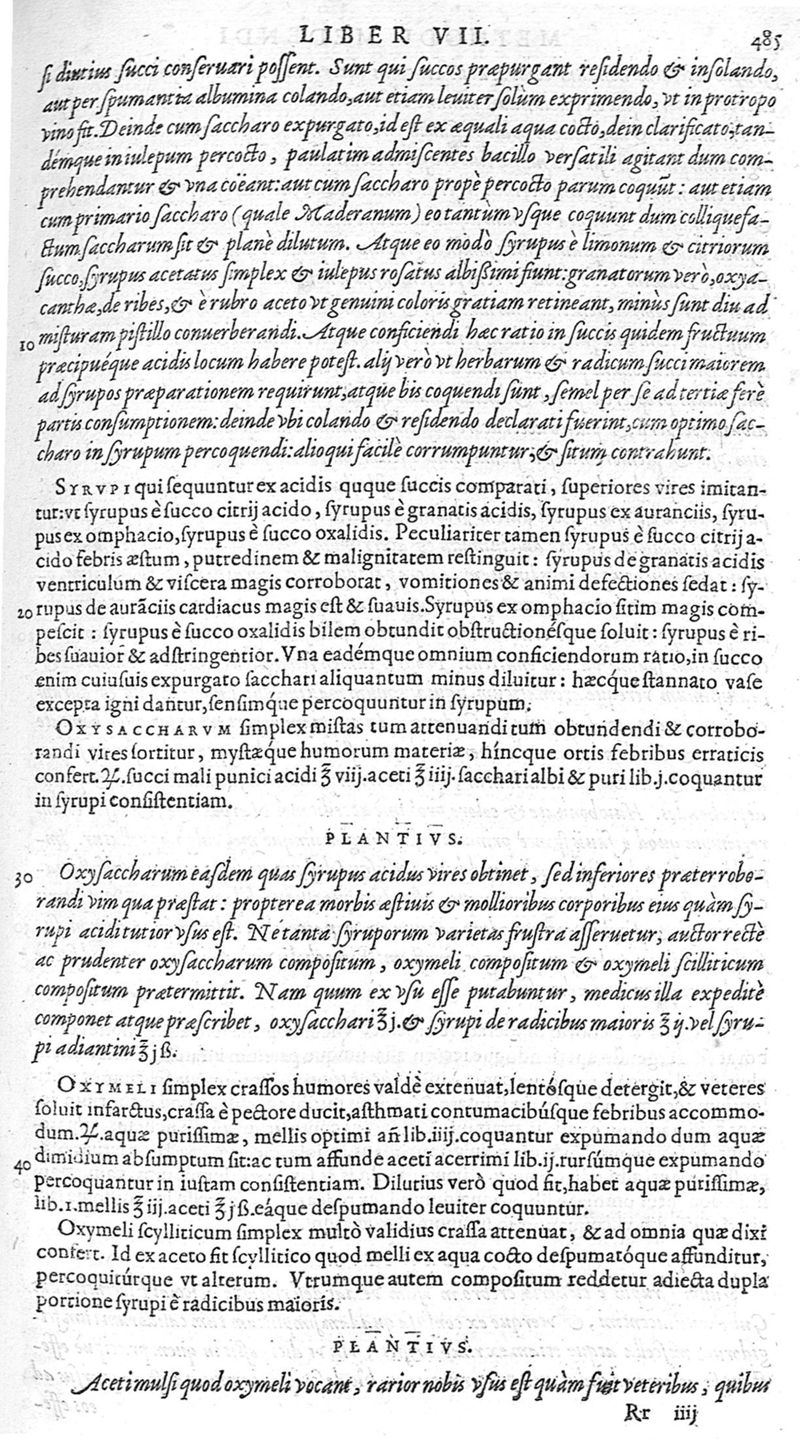 LIBER VII. 485
si diutius succi conseruari possent. Sunt qui succos præpurgant residendo & insolando,
aut per spumantia albumina colando, aut etiam leuiter solùm exprimendo, vt in protropo
vino fit. Deinde cum saccharo expurgato, id est ex æquali aqua cocto, dein clarificato, tan-
démque in iulepum percocto, paulatim admiscentes bacillo versatili agitant dum com-
prehendantur & vna coëant: aut cum saccharo propè percocto parum coquūt: aut etiam
cum primario saccharo (quale Maderanum) eo tantùm vsque coquunt dum colliquefa-
ctum saccharum sit & planè dilutum. Atque eo modo syrupus è limonum & citriorum
succo, syrupus acetatus simplex & iulepus rosatus albißimi fiunt: granatorum verò, oxya-
canthæ, de ribes, & è rubro aceto vt genuini coloris gratiam retineant, minùs sunt diu ad
10 misturam pistillo conuerberandi. Atque conficiendi hæc ratio in succis quidem fructuum
præcipuéque acidis locum habere potest. alij verò vt herbarum & radicum succi maiorem
ad syrupos præparationem requirunt, atque bis coquendi sunt, semel per se ad tertiæ ferè
partis consumptionem: deinde vbi colando & residendo declarati fuerint, cum optimo sac-
charo in syrupum percoquendi: alioqui facilè corrumpuntur, & situm contrahunt.
SYRVPI qui sequuntur ex acidis quque succis comparati, superiores vires imitan-
tur: vt syrupus è succo citrij acido, syrupus è granatis acidis, syrupus ex auranciis, syru-
pus ex omphacio, syrupus è succo oxalidis. Peculiariter tamen syrupus è succo citrij a-
cido febris æstum, putredinem & malignitatem restinguit: syrupus de granatis acidis
ventriculum & viscera magis corroborat, vomitiones & animi defectiones sedat: sy-
20 rupus de aurāciis cardiacus magis est & suauis. Syrupus ex omphacio sitim magis com-
pescit: syrupus è succo oxalidis bilem obtundit obstructionésque soluit: syrupus è ri-
bes suauior & adstringentior. Vna eadémque omnium conficiendorum ratio, in succo
enim cuiusuis expurgato sacchari aliquantum minus diluitur: hæcque stannato vase
excepta igni dantur, sensimque percoquuntur in syrupum.
OXYSACCHARVM simplex mistas tum attenuandi tum obtundendi & corrobo-
randi vires sortitur, mystæque humorum materiæ, híncque ortis febribus erraticis
confert. ℞. succi mali punici acidi ℥ viij. aceti ℥ iiij. sacchari albi & puri lib. j. coquantur
in syrupi consistentiam.
PLANTIVS.
30 Oxysaccharum easdem quas syrupus acidus vires obtinet, sed inferiores præter robo-
randi vim qua præstat: propterea morbis æstiuis & mollioribus corporibus eius quàm sy-
rupi aciditutior vsus est. Ne tanta syruporum varietas frustra asseruetur, auctor rectè
ac prudenter oxysaccharum compositum, oxymeli compositum & oxymeli scilliticum
compositum prætermittit. Nam quum ex vsu esse putabuntur, medicus illa expeditè
componet atque præscribet, oxysacchari ℥ j. & syrupi de radicibus maioris ℥ ij. vel syru-
pi adiantini ℥ j ß.
OXYMELI simplex crassos humores valdè extenuat, lentósque detergit, & veteres
soluit infarctus, crassa è pectore ducit, asthmati contumacibúsque febribus accommo-
dum. ℞. aquæ purissimæ, mellis optimi añ lib. iiij. coquantur expumando dum aquæ
40 dimidium absumptum sit: ac tum affunde aceti acerrimi lib. ij. rursúmque expumando
percoquantur in iustam consistentiam. Dilutius verò quod fit, habet aquæ purissimæ,
lib. 1. mellis ℥ iij. aceti ℥ j ß. eáque despumando leuiter coquuntur.
Oxymeli scylliticum simplex multò validius crassa attenuat, & ad omnia quæ dixi
confert. Id ex aceto fit scyllitico quod melli ex aqua cocto despumatóque affunditur,
percoquitúrque vt alterum. Vtrumque autem compositum reddetur adiecta dupla
portione syrupi è radicibus maioris.
PLANTIVS.
Aceti mulsi quod oxymeli vocant, rarior nobis vsus est quàm fuit veteribus, quibus
Rr iiij